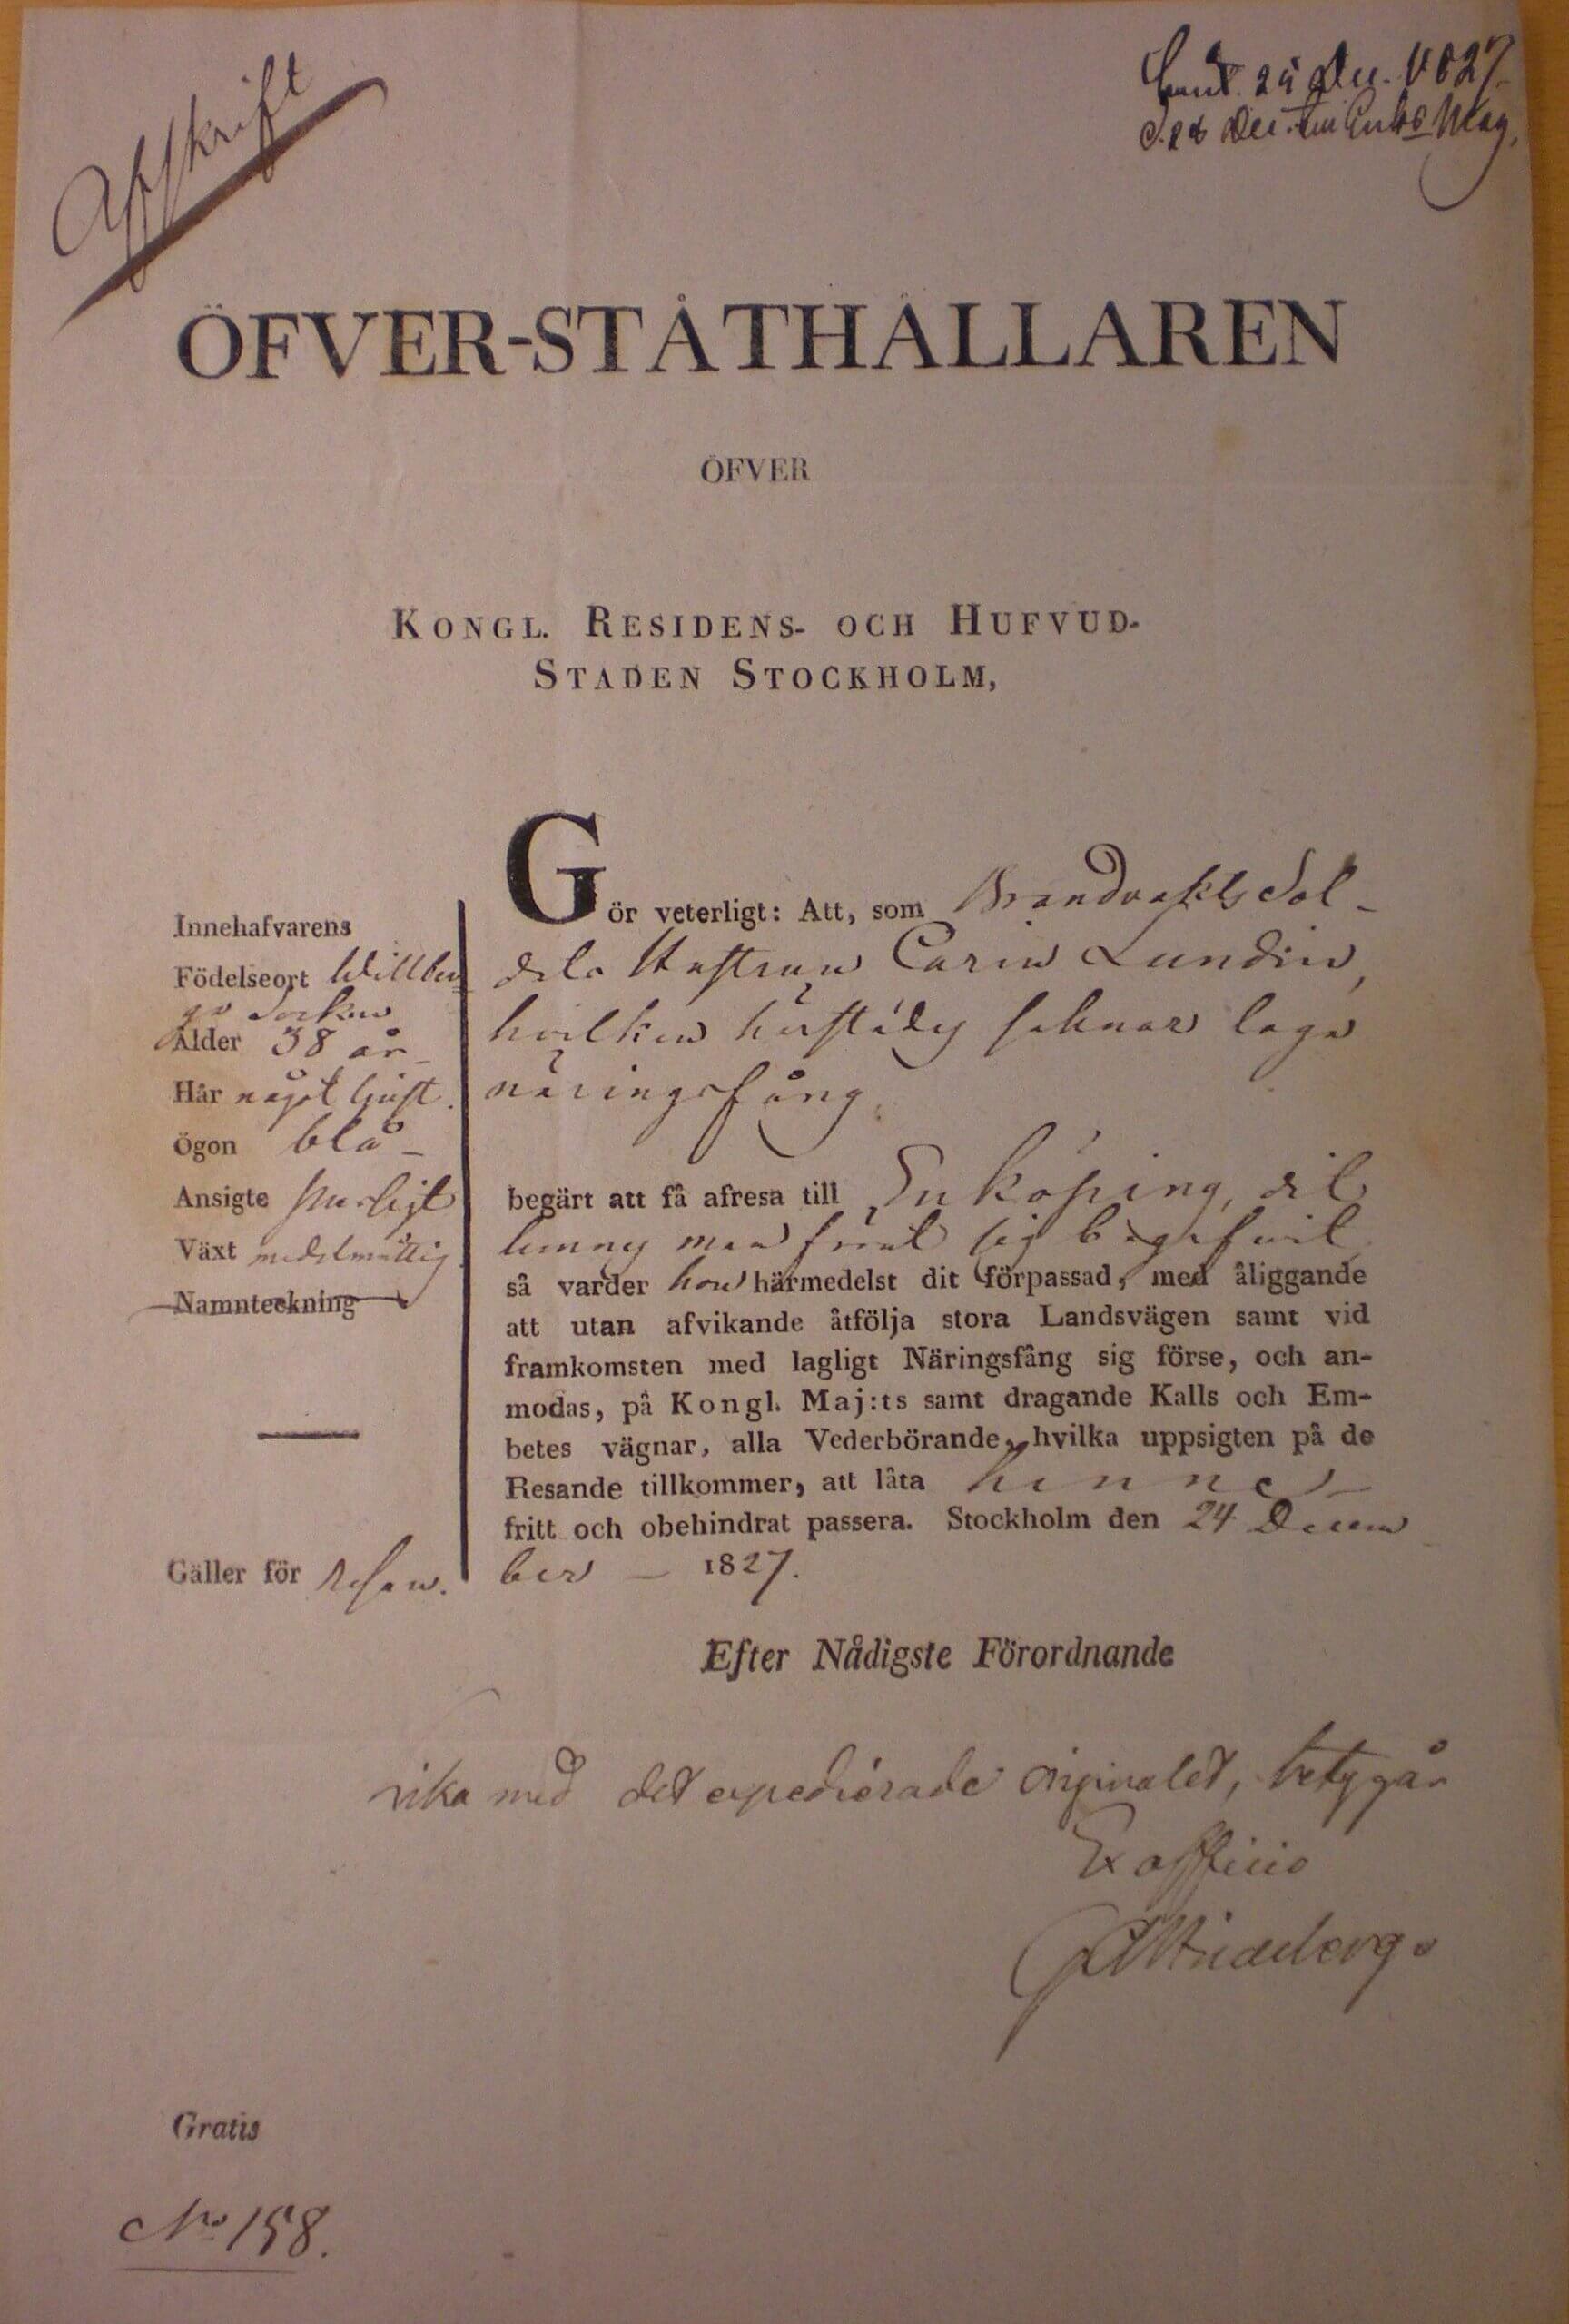 Afskrift
25 Dec. 1827
ÖFVER-STÅTHÅLLAREN
ÖFVER
KONGL. RESIDENS- OCH HUFVUD-
STADEN STOCKHOLM,
Gör veterligt: Att, som Brandvakts Sol-
data Hustrun Carin Lundin,
hvilken härstädes saknar laga
näringsfång
begärt att få afresa till Enköping, dit
hon nu säges sig begifvit
så varder hon härmedelst dit förpassad, med åliggande
att utan afvikande åtfölja stora Landsvägen samt vid
framkomsten med lagligt Näringsfång sig förse, och an-
modas, på Kongl. Maj:ts samt dragande Kalls och Em-
betes vägnar, alla Vederbörande, hvilka uppsigten på de
Resande tillkommer, att låta henne
fritt och obehindrat passera. Stockholm den 24 Decem
ber 1827.
Innehafvarens
Födelseort Willber
ga Socken
Ålder 38 år
Hår något ljust.
Ögon blå
Ansigte
Växt medelmåttig
Namnteckning
Gäller för resan.
Efter Nådigste Förordnande
lika med det expedierade originalet, betygar
Ex officio
Gratis
No 158.